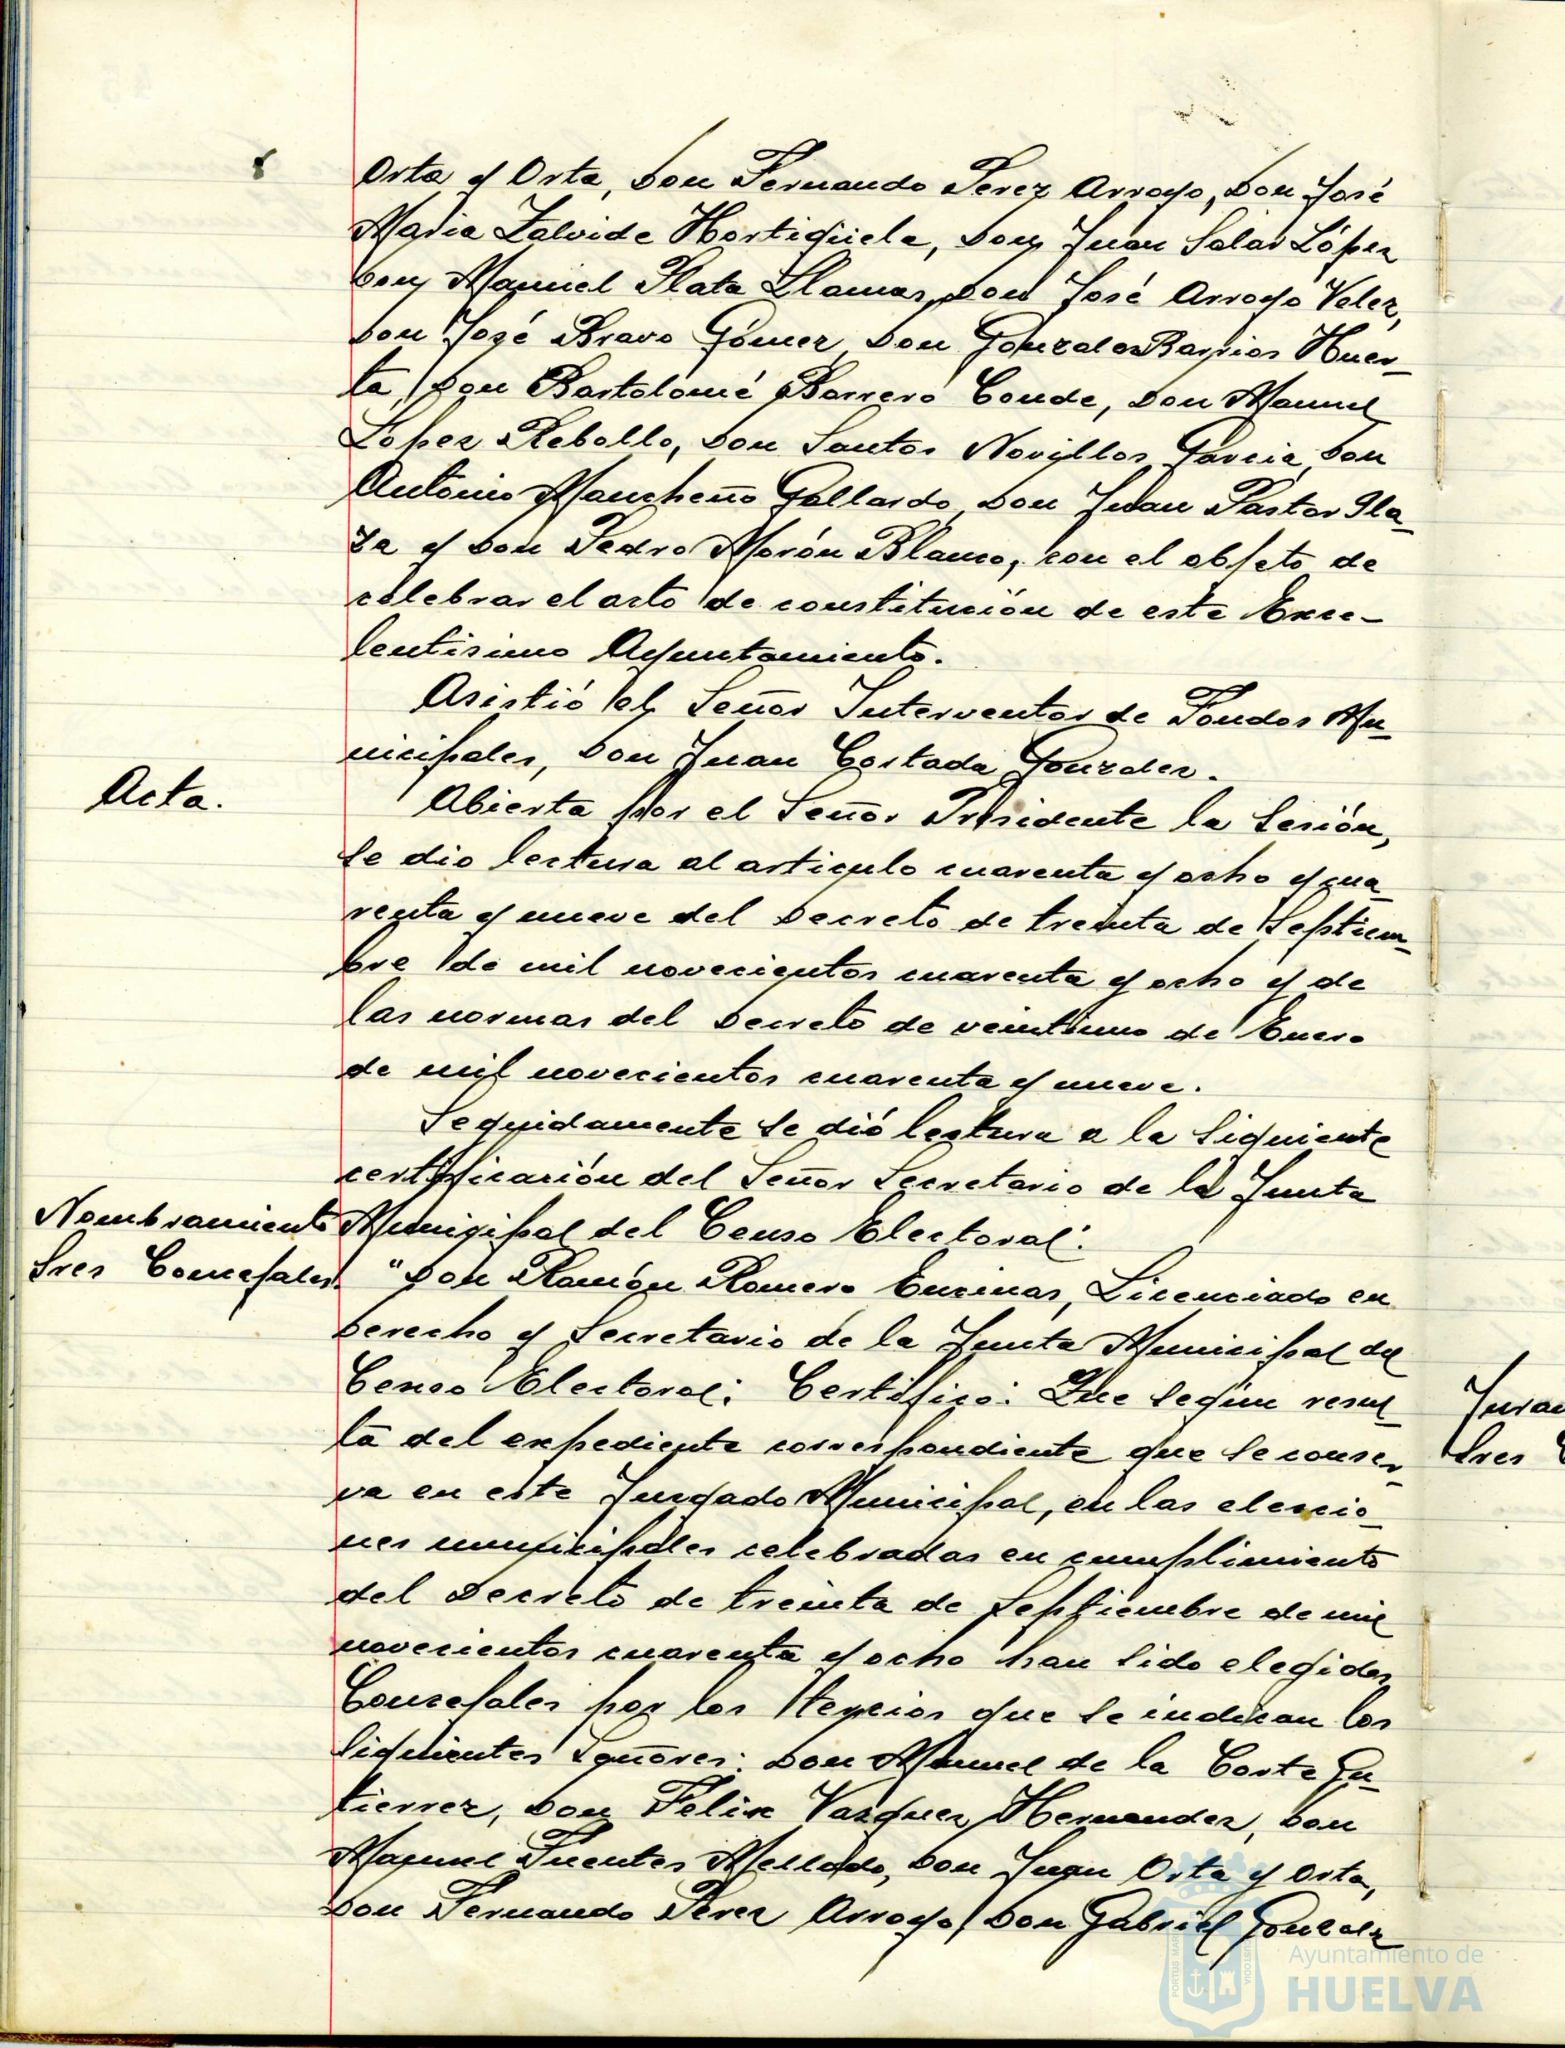 Orta y Orta, Don Fernando Perez Arroyo, Don José
Maria Zalvide Hortigüela, Don Juan Salas López
Don Manuel Plata Llamas, Don José Arroyo Velez,
Don José Bravo Gómez, Don Gonzalo Barrios Huer-
ta, Don Bartolomé Borrero Conde, Don Manuel
Lopez Rebollo, Don Santos Novillos Garcia, Don
Antonio Mancheño Gallardo, Don Juan Pastor Pla-
za y Don Pedro Morón Blanco, con el objeto de
celebrar el acto de constitución de este Exce-
lentisimo Ayuntamiento.
Asistió el Señor Interventor de Fondos Mu-
nicipales, Don Juan Cortada Gonzalez.
Acta.
Abierta por el Señor Presidente la Sesión,
se dio lectura al articulo cuarenta y ocho y cua-
renta y nueve del Decreto de treinta de Septiem-
bre de mil novecientos cuarenta y ocho y de
las normas del Decreto de veintiuno de Enero
de mil novecientos cuarenta y nueve.
Seguidamente se dió lectura a la siguiente
certificación del Señor Secretario de la Junta
Nombramiento
Municipal del Censo Electoral:
Sres Concejales.
"Don Ramón Romero Encinas, Licenciado en
Derecho y Secretario de la Junta Municipal del
Censo Electoral; Certifico: Que según resul-
ta del expediente correspondiente que se conser-
va en este Juzgado Municipal, en las eleccio-
nes municipales celebradas en cumplimiento
del Decreto de treinta de Septiembre de mil
novecientos cuarenta y ocho han sido elegidos
Concejales por los tercios que se indican los
siguientes Señores: Don Manuel de la Corte Gu-
tierrez, Don Felix Vazquez Hernandez, Don
Manuel Fuentes Mellado, Don Juan Orta y Orta,
Don Fernando Perez Arroyo, Don Gabriel Gonzalez
Sres
Ayuntamiento de
HUELVA